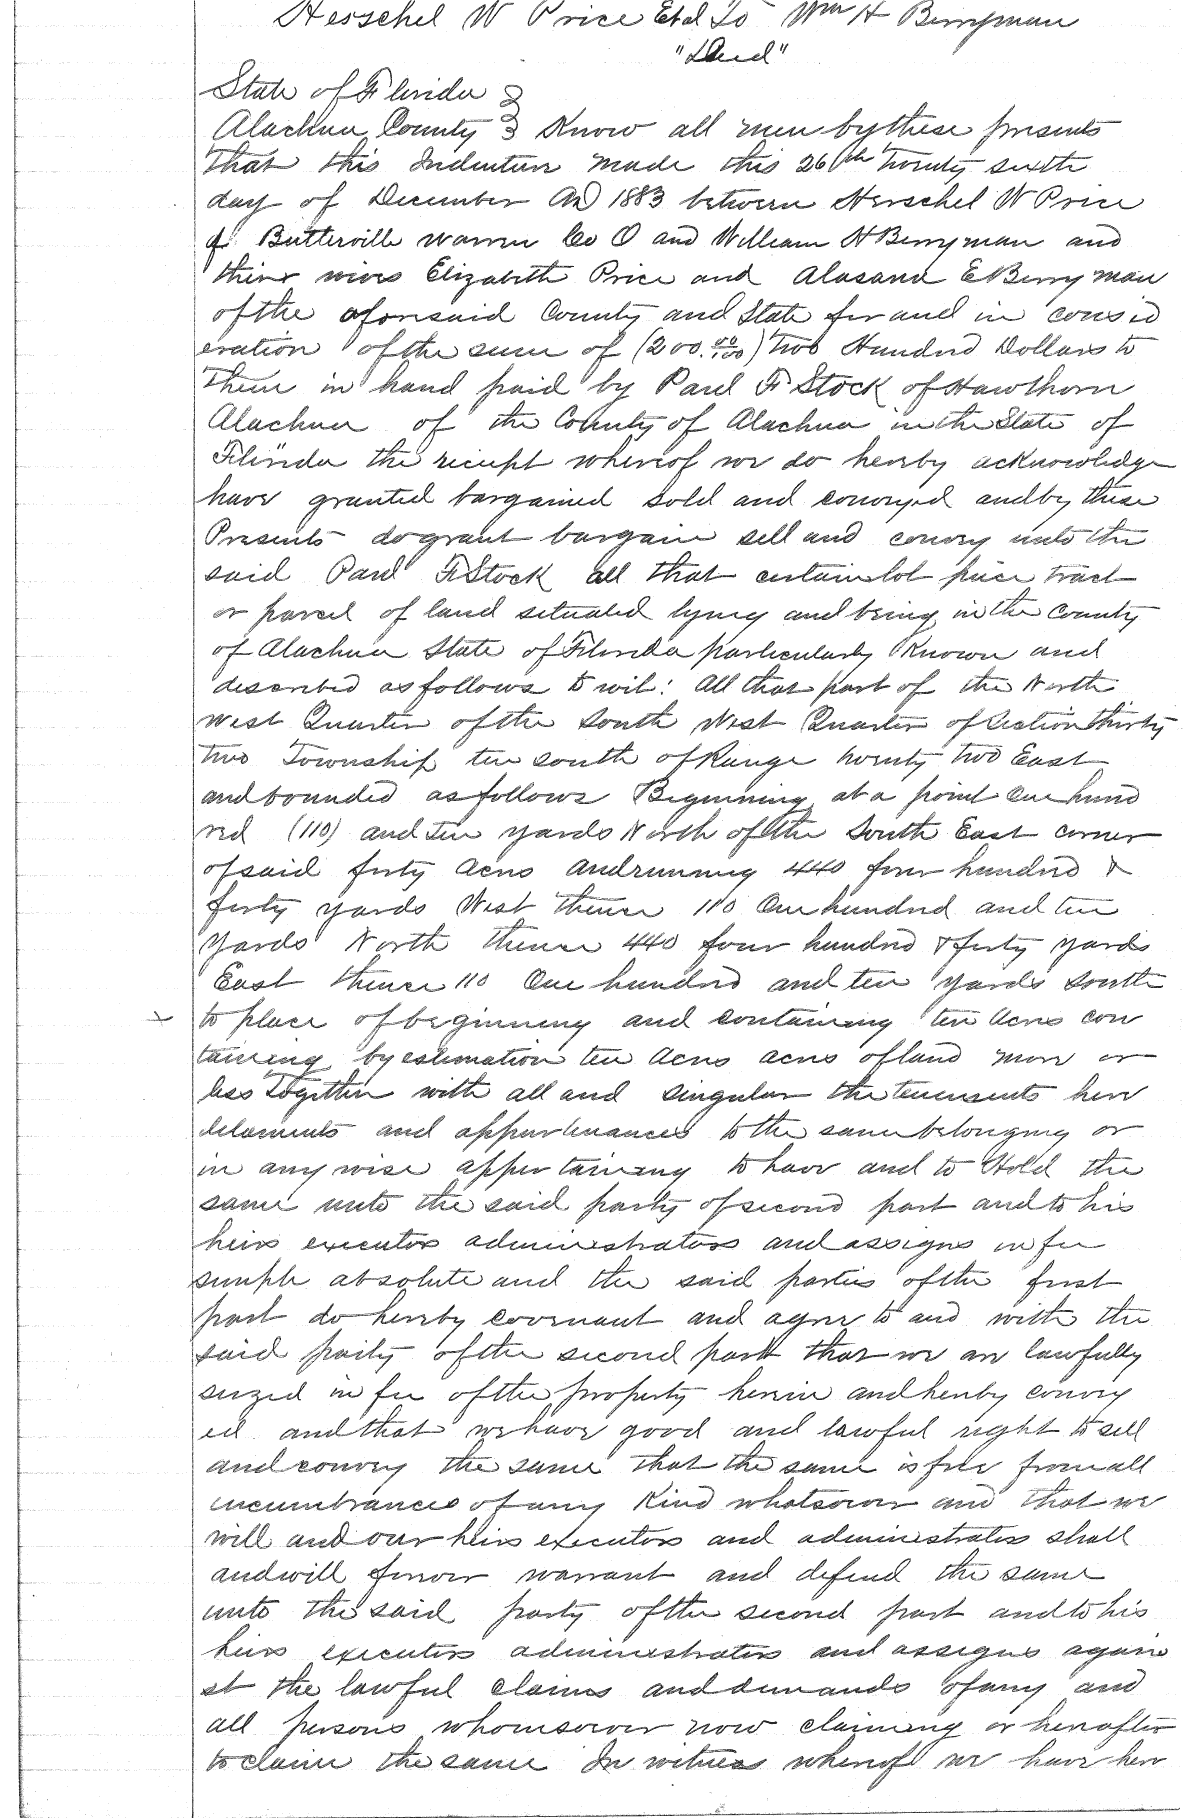 Herschel W Price Et al To Wm H Berryman
"Deed"
State of Florida
Alachua County Know all men by these presents
That this Indenture made this 26th Twenty sixth
day of December AD 1883 between Herschel W Price
of Butlerville Warren Co O and William H Berryman and
their wives Elizabeth Price and Alasana E Berryman
of the aforesaid County and State for and in consid
eration of the sum of (200.00/100) Two Hundred Dollars to
Them in hand paid by Paul F Stock of Hawthorn
Alachua of the County of Alachua in the State of
Florida the receipt whereof we do hereby acknowledge
have granted bargained sold and conveyed and by these
Presents do grant bargain sell and convey unto the
said Paul F Stock all that certain lot piece tract
or parcel of land situated lying and being in the County
of Alachua State of Florida particularly Known and
described as follows to wit: All that part of the North
West Quarter of the South West Quarter of Section thirty
two Township ten south of Range twenty two East
and bounded as follows Beginning at a point One hund
red (110) and Ten yards North of the South East corner
of said forty acres and running 440 four hundred &
forty yards West thence 110 One hundred and ten
Yards North thence 440 four hundred & forty yards
East thence 110 One hundred and ten yards south
to place of beginning and containing ten Acres con
taining by estimation ten Acres acres of land more or
less Together with all and singular the tenements here
ditaments and appurtenances to the same belonging or
in any wise appertaining to have and to Hold the
same unto the said party of second part and to his
heirs executors administrators and assigns in fee
simple absolute and the said parties of the first
part do hereby covenant and agree to and with the
said party of the second part that we are lawfully
seized in fee of the property herein and hereby convey
ed and that we have good and lawful right to sell
and convey the same that the same is free from all
incumbrances of any Kind whatsoever and that we
will and our heirs executors and administrators shall
and will forever warrant and defend the same
unto the said party of the second part and to his
heirs executors administrators and assigns again
st the lawful claims and demands of any and
all persons whomsoever now claiming or hereafter
to claim the same In witness whereof we have here